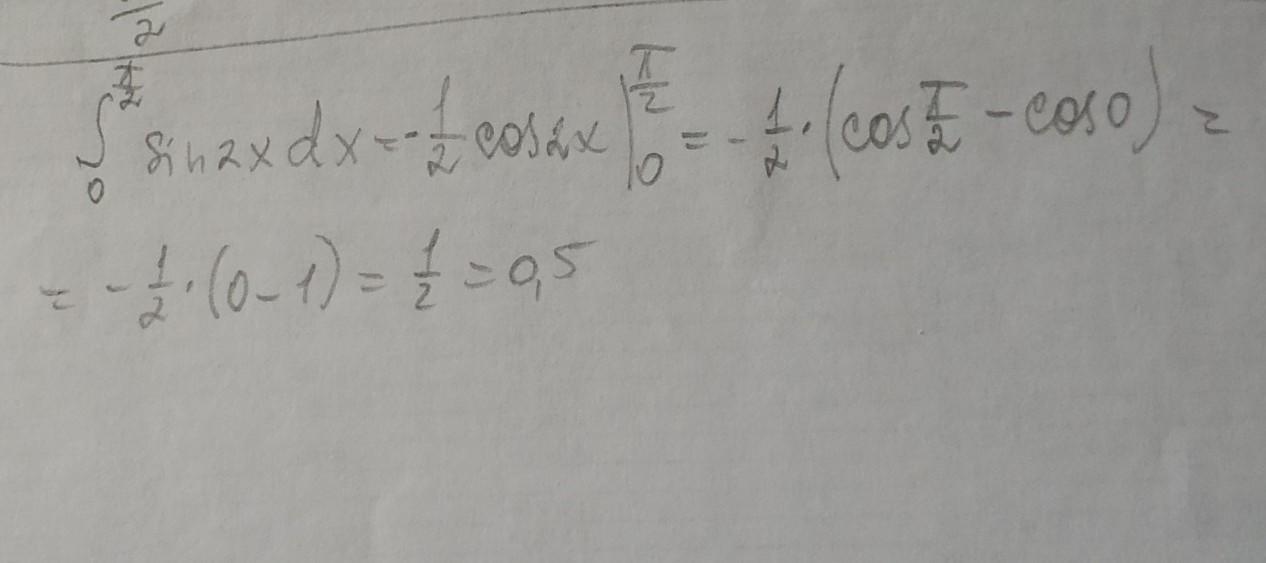 2
∫₀^(π/2) sin2x dx = -1/2 cos2x |₀^(π/2) = -1/2 · (cos π/2 - cos0) =
= -1/2 · (0-1) = 1/2 = 0,5